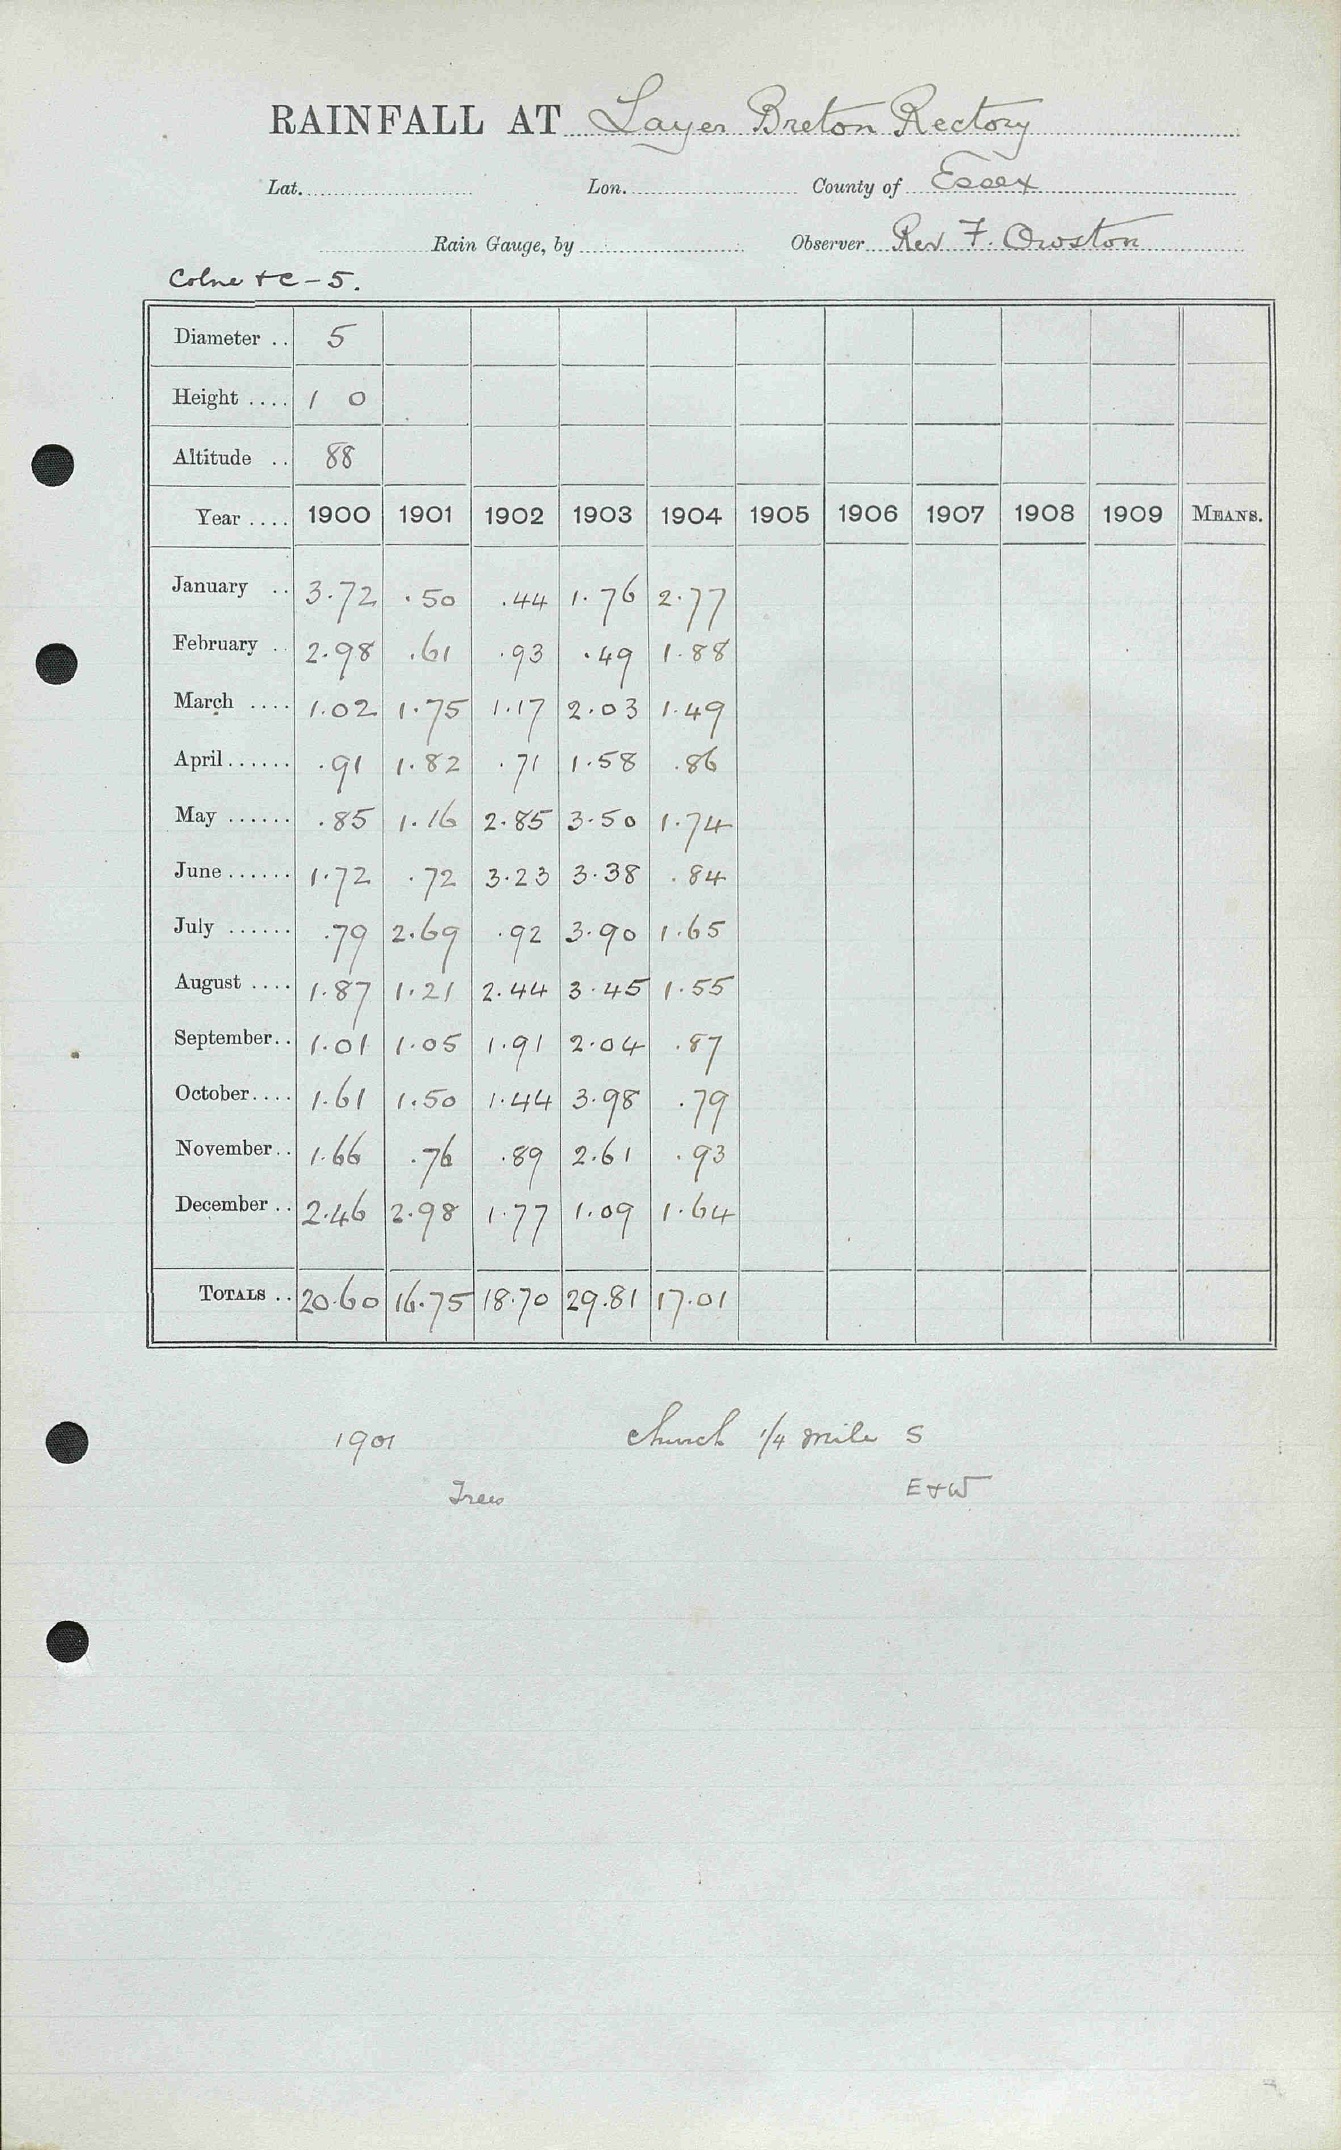 RAINFALL AT Layer Breton Rectory
Lat. Lon. County of Essex
Rain Gauge, by Observer Rev F. Owston
Colne & C – 5.
Diameter .. 5
Height .... 1 0
Altitude .. 88
Year .... 1900 1901 1902 1903 1904 1905 1906 1907 1908 1909 MEANS.
January .. 3.72 .50 .44 1.76 2.77
February .. 2.98 .61 .93 .49 1.88
March .... 1.02 1.75 1.17 2.03 1.49
April ...... .91 1.82 .71 1.58 .86
May ...... .85 1.16 2.85 3.50 1.74
June ...... 1.72 .72 3.23 3.38 .84
July ...... .79 2.69 .92 3.90 1.65
August .... 1.87 1.21 2.44 3.45 1.55
September.. 1.01 1.05 1.91 2.04 .87
October.... 1.61 1.50 1.44 3.98 .79
November.. 1.66 .76 .89 2.61 .93
December .. 2.46 2.98 1.77 1.09 1.64
TOTALS .. 20.60 16.75 18.70 29.81 17.01
1901 Church 1/4 mile S
Trees E & W